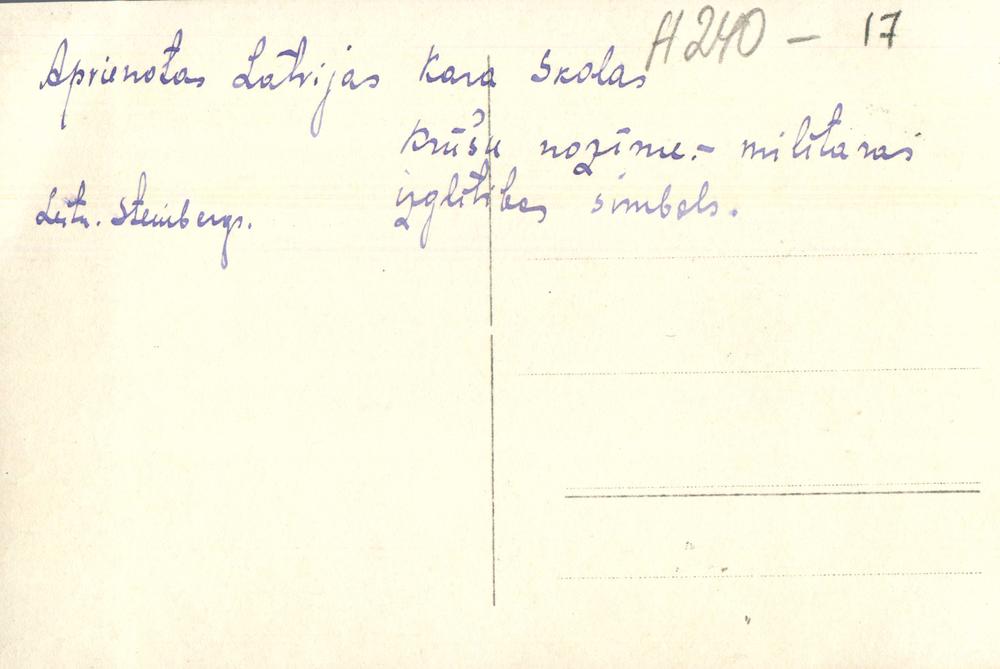 A 240 – 17
Aprienotas Latvijas Kara Skolas
Krūšu nozīme.- militaras
izglītības simbols.
Leitn. Steinbergs.